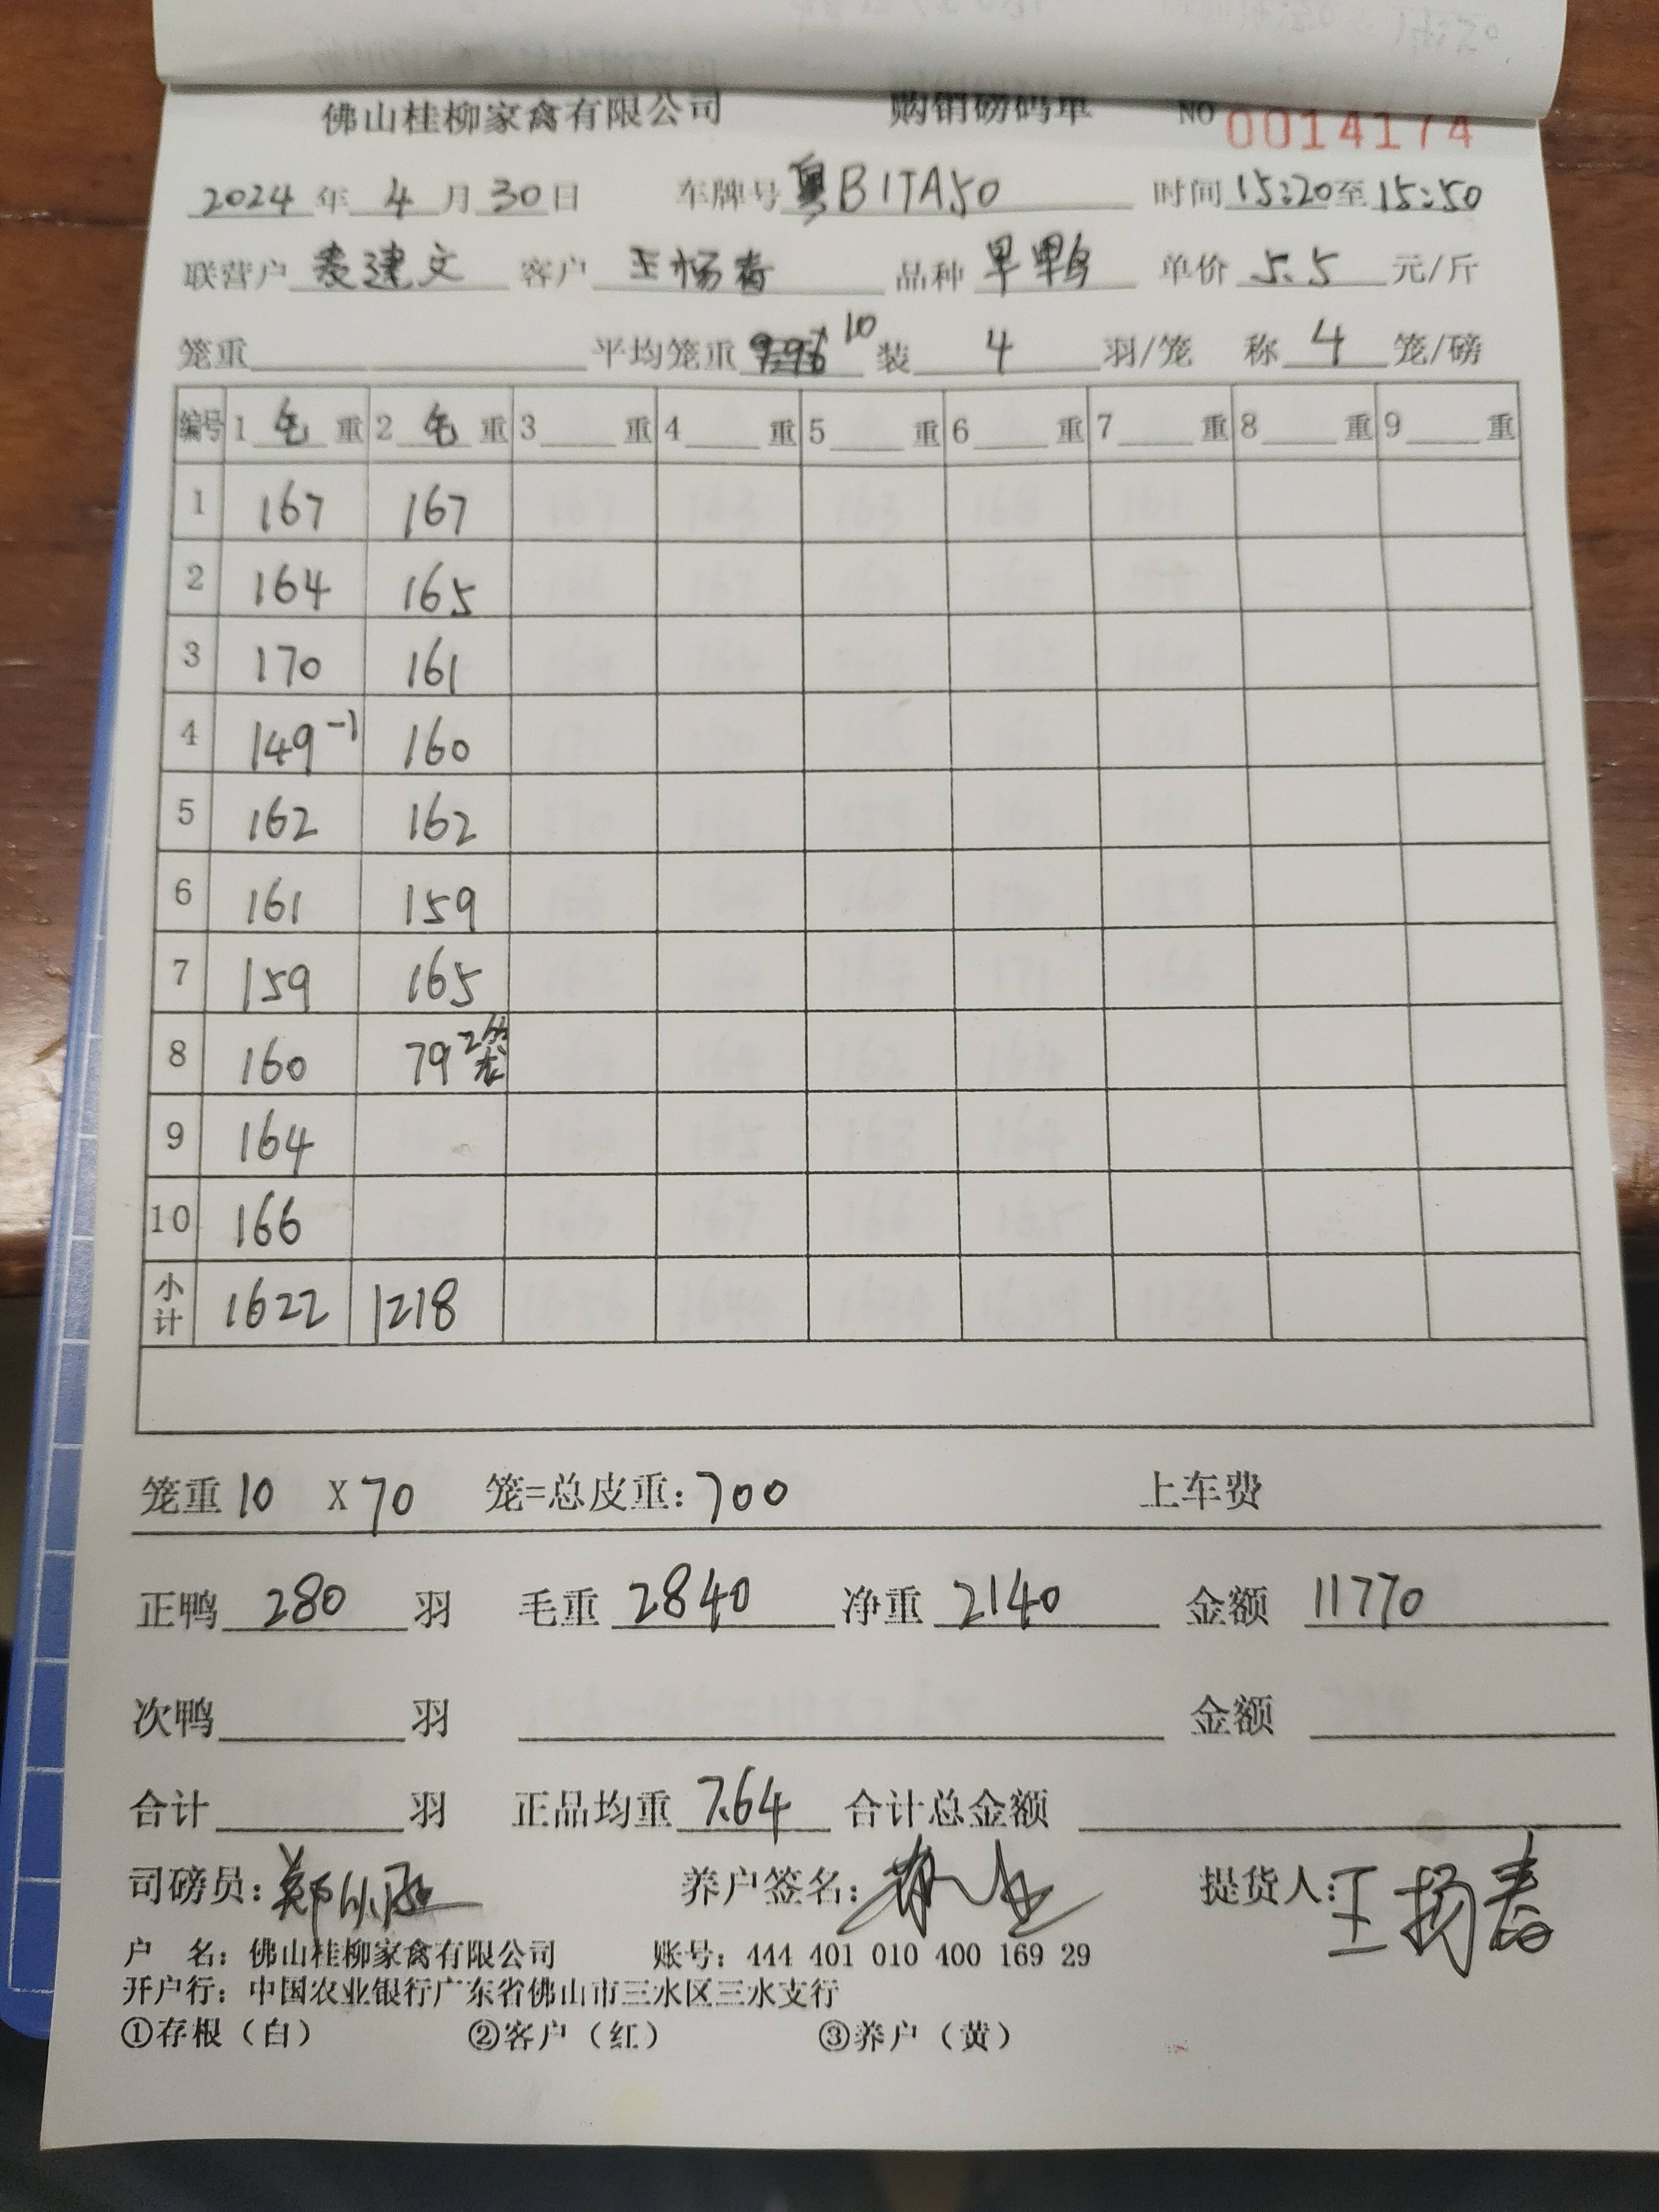 佛山桂柳家禽有限公司 购销磅码单 NO 0014174
2024 年 4 月 30 日 车牌号 粤B1TA50 时间 15:20 至 15:50
联营户 麦建文 客户 王杨春 品种 早鸭 单价 5.5 元/斤
笼重 平均笼重 10 装 4 羽/笼 称 4 笼/磅
编号 1 毛 重 2 毛 重 3 重 4 重 5 重 6 重 7 重 8 重 9 重
1 167 167
2 164 165
3 170 161
4 149 -1 160
5 162 162
6 161 159
7 159 165
8 160 79 2笼
9 164
10 166
小计 1622 1218
笼重 10 X 70 笼=总皮重: 700 上车费
正鸭 280 羽 毛重 2840 净重 2140 金额 11770
次鸭 羽 金额
合计 羽 正品均重 7.64 合计总金额
司磅员: 养户签名: 提货人: 王扬春
户 名: 佛山桂柳家禽有限公司 账号: 444 401 010 400 169 29
开户行: 中国农业银行广东省佛山市三水区三水支行
①存根（白） ②客户（红） ③养户（黄）